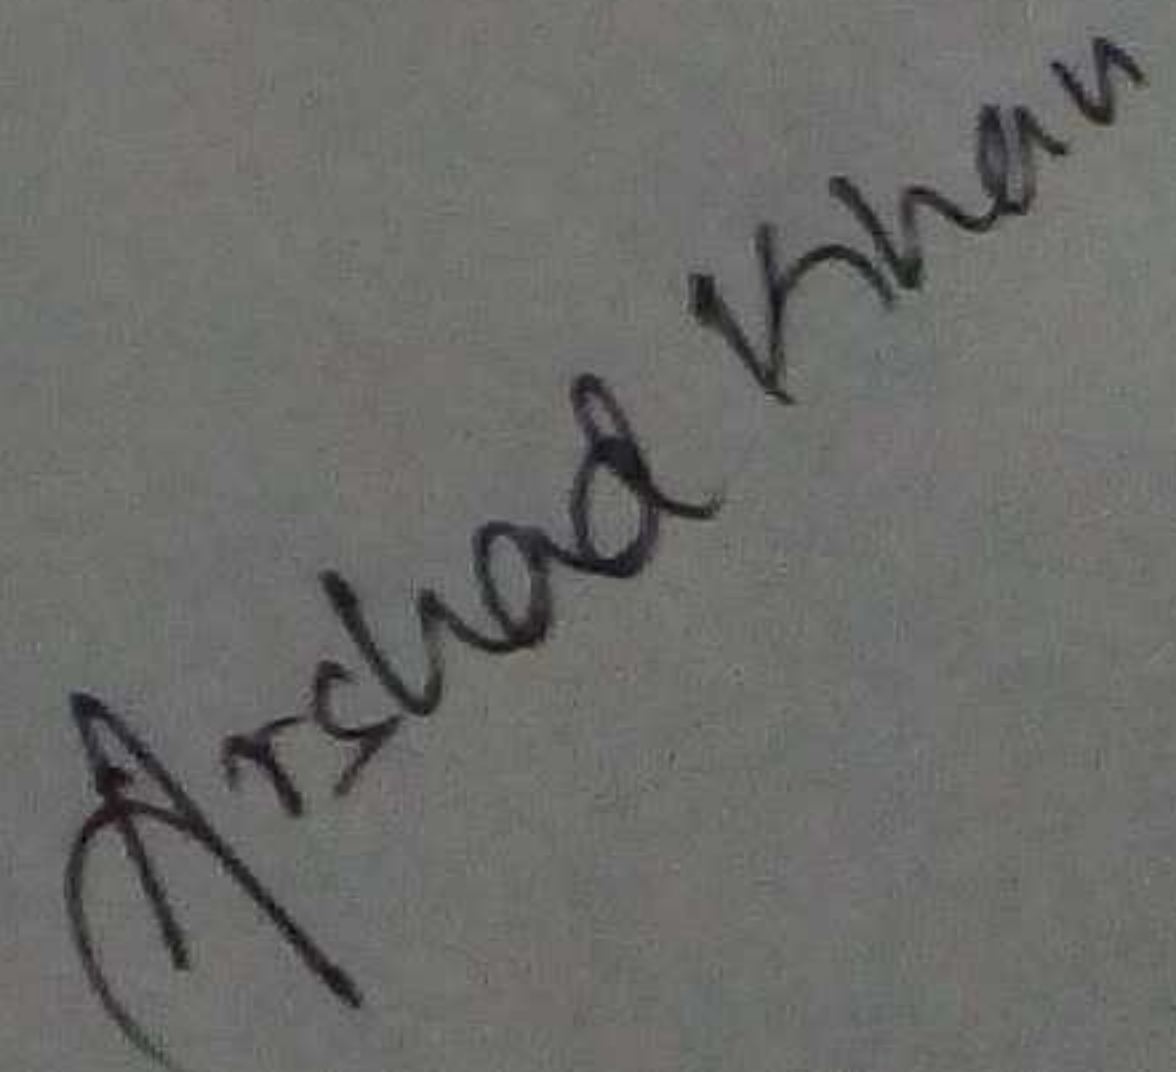 Arshad Khan